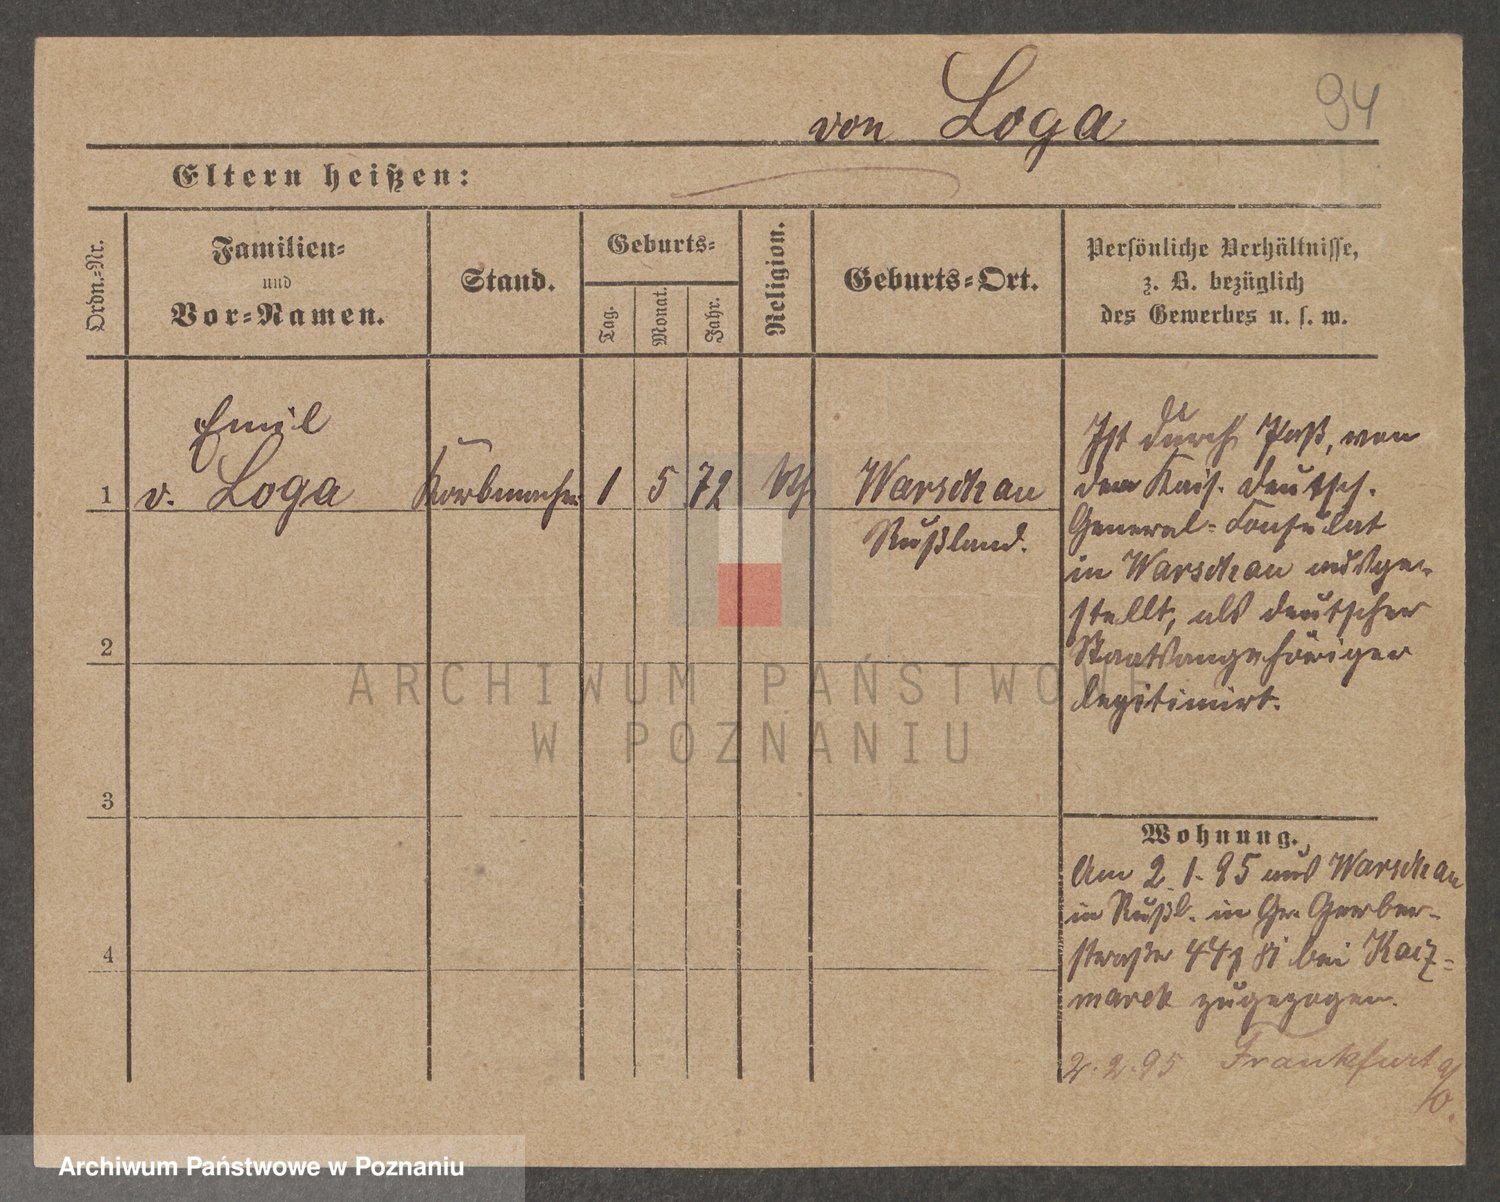 94
von Loga
Eltern heißen:
Ordn.-Nr.
Familien-
und
Vor-Namen.
Stand.
Geburts-
Tag.
Monat.
Jahr.
Religion.
Geburts-Ort.
Persönliche Verhältnisse,
z. B. bezüglich
des Gewerbes u. s. w.
Emil
1 v. Loga Korbmacher 1 5 72 Warschau
Rußland.
Ist durch Paß, von
dem Kais. deutsch.
General-Consulat
in Warschau ausge-
stellt, als deutscher
Staatsangehöriger
legitimirt.
2
3
4
Wohnung.
Am 2.1.95 aus Warschau
in Rußl. in Gr. Gerber-
straße 44 bei Kacz-
marek zugezogen.
2.2.95 Frankfurt a/
O.
ARCHIWUM PAŃSTWOWE
W POZNANIU
Archiwum Państwowe w Poznaniu